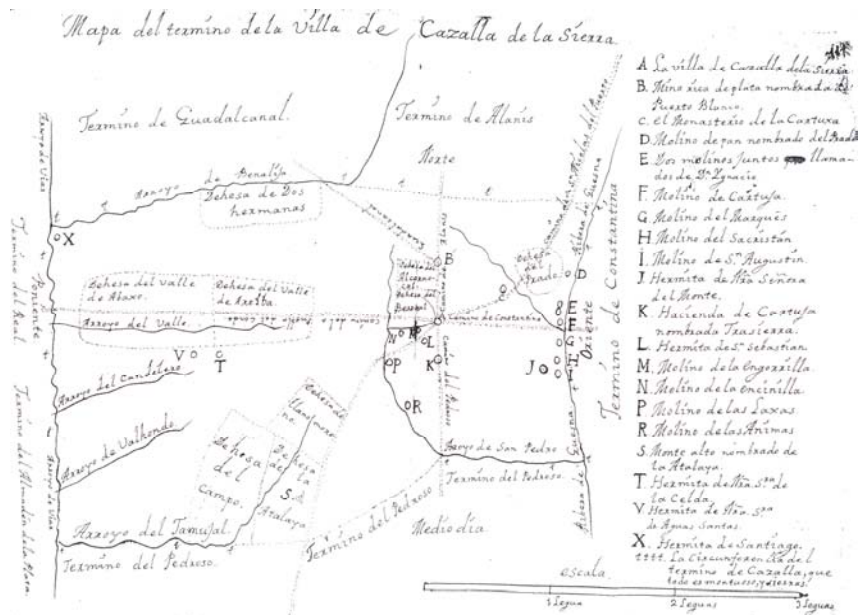 Mapa del termino de la Villa de Cazalla de la Sierra
Termino de Guadalcanal.
Termino de Alanis
Norte
Arroyo de Benalija
Dehesa de Dos
hermanas
Arroyo de Viar
X
Poniente
Termino del Real
Dehesa del Valle
de Abaxo.
Dehesa del Valle
de
Arroyo del Valle.
V
T
Arroyo del Candelero
Arroyo de Valhondo
Arroyo de Viar
Termino del Almadén de la Plata.
Dehesa
del
Campo.
Dehesa
de la
Atalaya
S.
Arroyo del Tamujal
Termino del Pedroso.
Termino del Pedroso
B
C
Dehesa
del
Prado.
D
Camino de Constantina
Camino
N
L
P
K
R
E
F
J
Oriente
Termino de Constantina
Ribera de Guesna
Arroyo de San Pedro
Termino del Pedroso.
Medio dia
Ribera de Guesna
escala.
1 Legua
2 Leguas
3 Leguas
A La villa de Cazalla de la Sierra
B. Mina rica de plata nombrada
Puerto Blanco.
C. el Monasterio de la Cartuxa
D. Molino de pan nombrado del Prado
E. Dos molinos juntos llama-
dos de Dn. Ygnacio
F. Molino de Cartuja.
G Molino del Marqués
H Molino del Sacristán
I. Molino de Sn. Augustin.
J. Hermita de Nra Señora
del Monte.
K. Hacienda de Cartuja
nombrada Trasierra.
L. Hermita de Sn. Sebastian.
M. Molino de la Engorrilla
N. Molino de la encinilla.
P Molino de las Laxas.
R Molino de las Animas
S. Monte alto nombrado de
la Atalaya.
T. Hermita de Nra. Sra. de
la Celda.
V Hermita de Nra. Sra
de Aguas Santas.
X. Hermita de Santiago.
tttt. La circunferencia del
termino de Cazalla, que
todo es montuoso, y sierras.